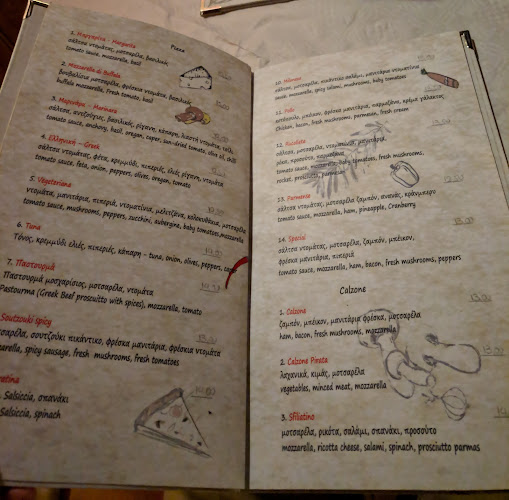 Pizza
1. Μαργαρίτα - Margarita
σάλτσα ντομάτας, μοτσαρέλα, βασιλικός
tomato sauce, mozzarella, basil
2. Mozzarella di Buffala
βουβαλίσια μοτσαρέλα, φρέσκια ντομάτα, βασιλικός
buffala mozzarella, fresh tomato, basil
3. Μαρινάρα - Marinara
σάλτσα, αντζούγιες, βασιλικός, ρίγανη, κάπαρη, λιαστή ντομάτα
tomato sauce, anchovy, basil, oregan, caper, sun-dried tomato, olive oil, chili
4. Ελληνική - Greek
σάλτσα ντομάτας, φέτα, κρεμμύδι, πιπεριές, ελιές, ρίγανη, ντομάτα
tomato sauce, feta, onion, peppers, olives, oregan, tomato
5. Vegeteriana
ντομάτα, μανιτάρια, πιπεριά, ντοματίνια, μελιτζάνα, κολοκυθάκια, μοτσαρέλα
tomato sauce, mushrooms, peppers, zucchini, aubergine, baby tomatoes, mozzarella
6. Tuna
Τόνος, κρεμμύδι ελιές, πιπεριές, κάπαρη - tuna, onion, olives, peppers, caper
7. Παστουρμά
Παστουρμά μοσχαρίσιος, μοτσαρέλα, ντομάτα
Pastourma (Greek Beef proscuitto with spices), mozzarella, tomato
Soutzouki spicy
σαρέλα, σουτζούκι πικάντικο, φρέσκα μανιτάρια, φρέσκια ντομάτα
arella, spicy sausage, fresh mushrooms, fresh tomatoes
Salsiccia, σπανάκι
Salsiccia, spinach
10.
sauce, mozzarella, spicy salami, mushrooms, baby tomatoes
11.
κοτόπουλο, μπέικον, φρέσκα μανιτάρια, παρμεζάνα, κρέμα γάλακτος
Chicken, bacon, fresh mushrooms, parmesan, fresh cream
12. Rucolata
σάλτσα, μοτσαρέλα, ντοματίνια, μανιτάρια
ρόκα, προσούτο, παρμεζάνα
tomato sauce, mozzarella, baby tomatoes, fresh mushrooms,
rocket, prosciutto, parmesan
13.
σάλτσα ντομάτας, μοτσαρέλα ζαμπόν, ανανάς, κράνμπερυ
tomato sauce, mozzarella, ham, pineapple, Cranberry
14. Special
σάλτσα ντομάτας, μοτσαρέλα, ζαμπόν, μπέικον,
φρέσκα μανιτάρια, πιπεριά
tomato sauce, mozzarella, ham, bacon, fresh mushrooms, peppers
Calzone
1. Calzone
ζαμπόν, μπέικον, μανιτάρια φρέσκα, μοτσαρέλα
ham, bacon, fresh mushrooms, mozzarella
2. Calzone Pirata
λαχανικά, κιμάς, μοτσαρέλα
vegetables, minced meat, mozzarella
3. Sfilatino
μοτσαρέλα, ρικότα, σαλάμι, σπανάκι, προσούτο
mozzarella, ricotta cheese, salami, spinach, prosciutto parmas